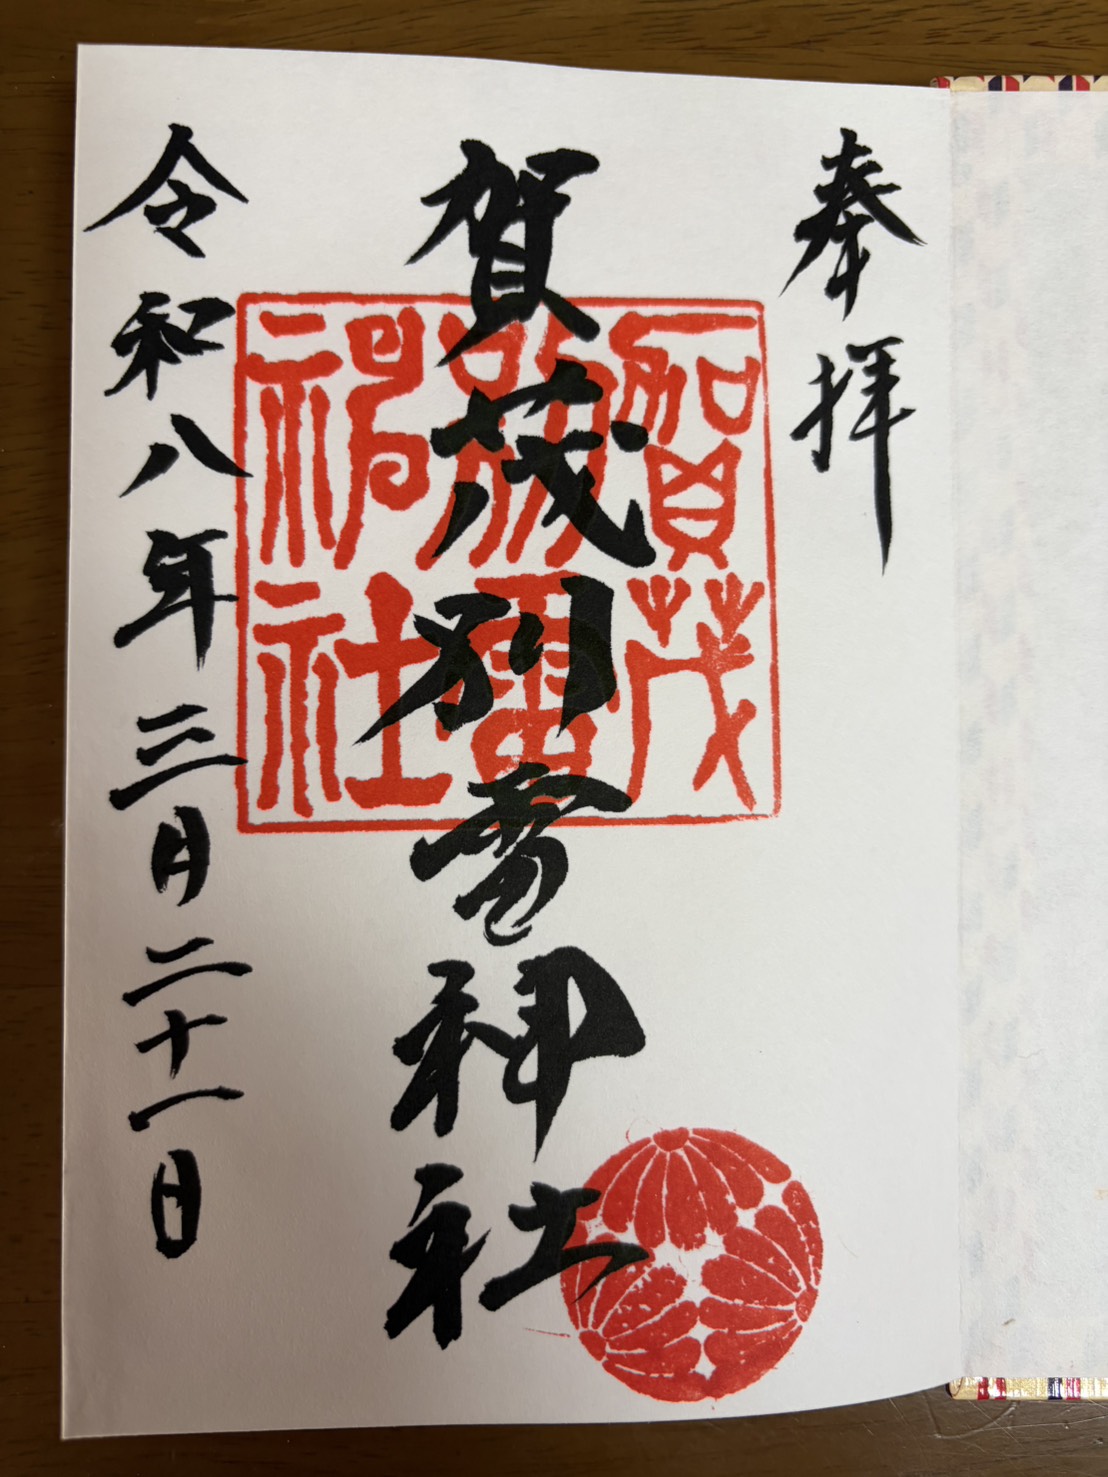 奉拝
賀茂別雷神社
令和八年三月二十一日
賀茂
別雷
神社